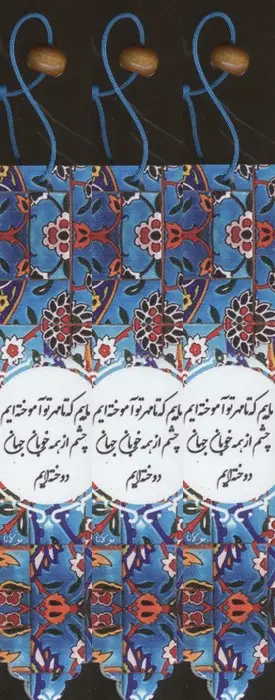 ماییم که تا مهر تو آموخته‌ایم
چشم از همه خوبان جهان
دوخته‌ایم
مولانا
ماییم که تا مهر تو آموخته‌ایم
چشم از همه خوبان جهان
دوخته‌ایم
مولانا
ماییم که تا مهر تو آموخته‌ایم
چشم از همه خوبان جهان
دوخته‌ایم
مولانا